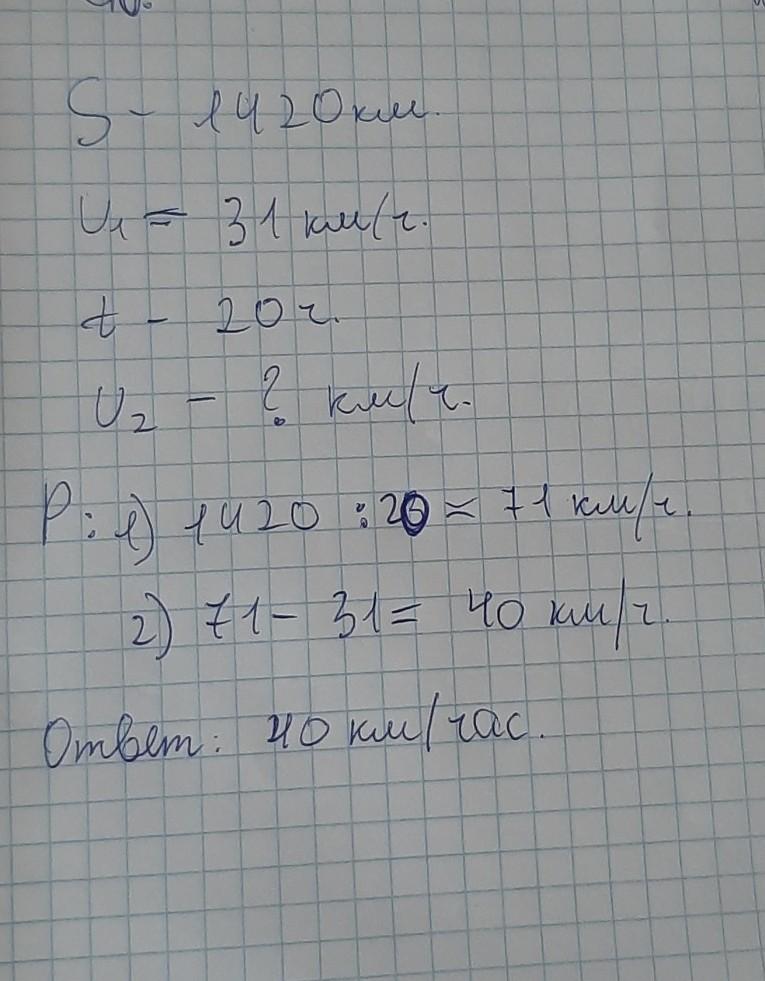 S - 1420 км.
υ₁ = 31 км/ч.
t - 20 ч.
υ₂ - ? км/ч.
Р: 1) 1420 : 20 = 71 км/ч.
2) 71 - 31 = 40 км/ч.
Ответ: 40 км/час.